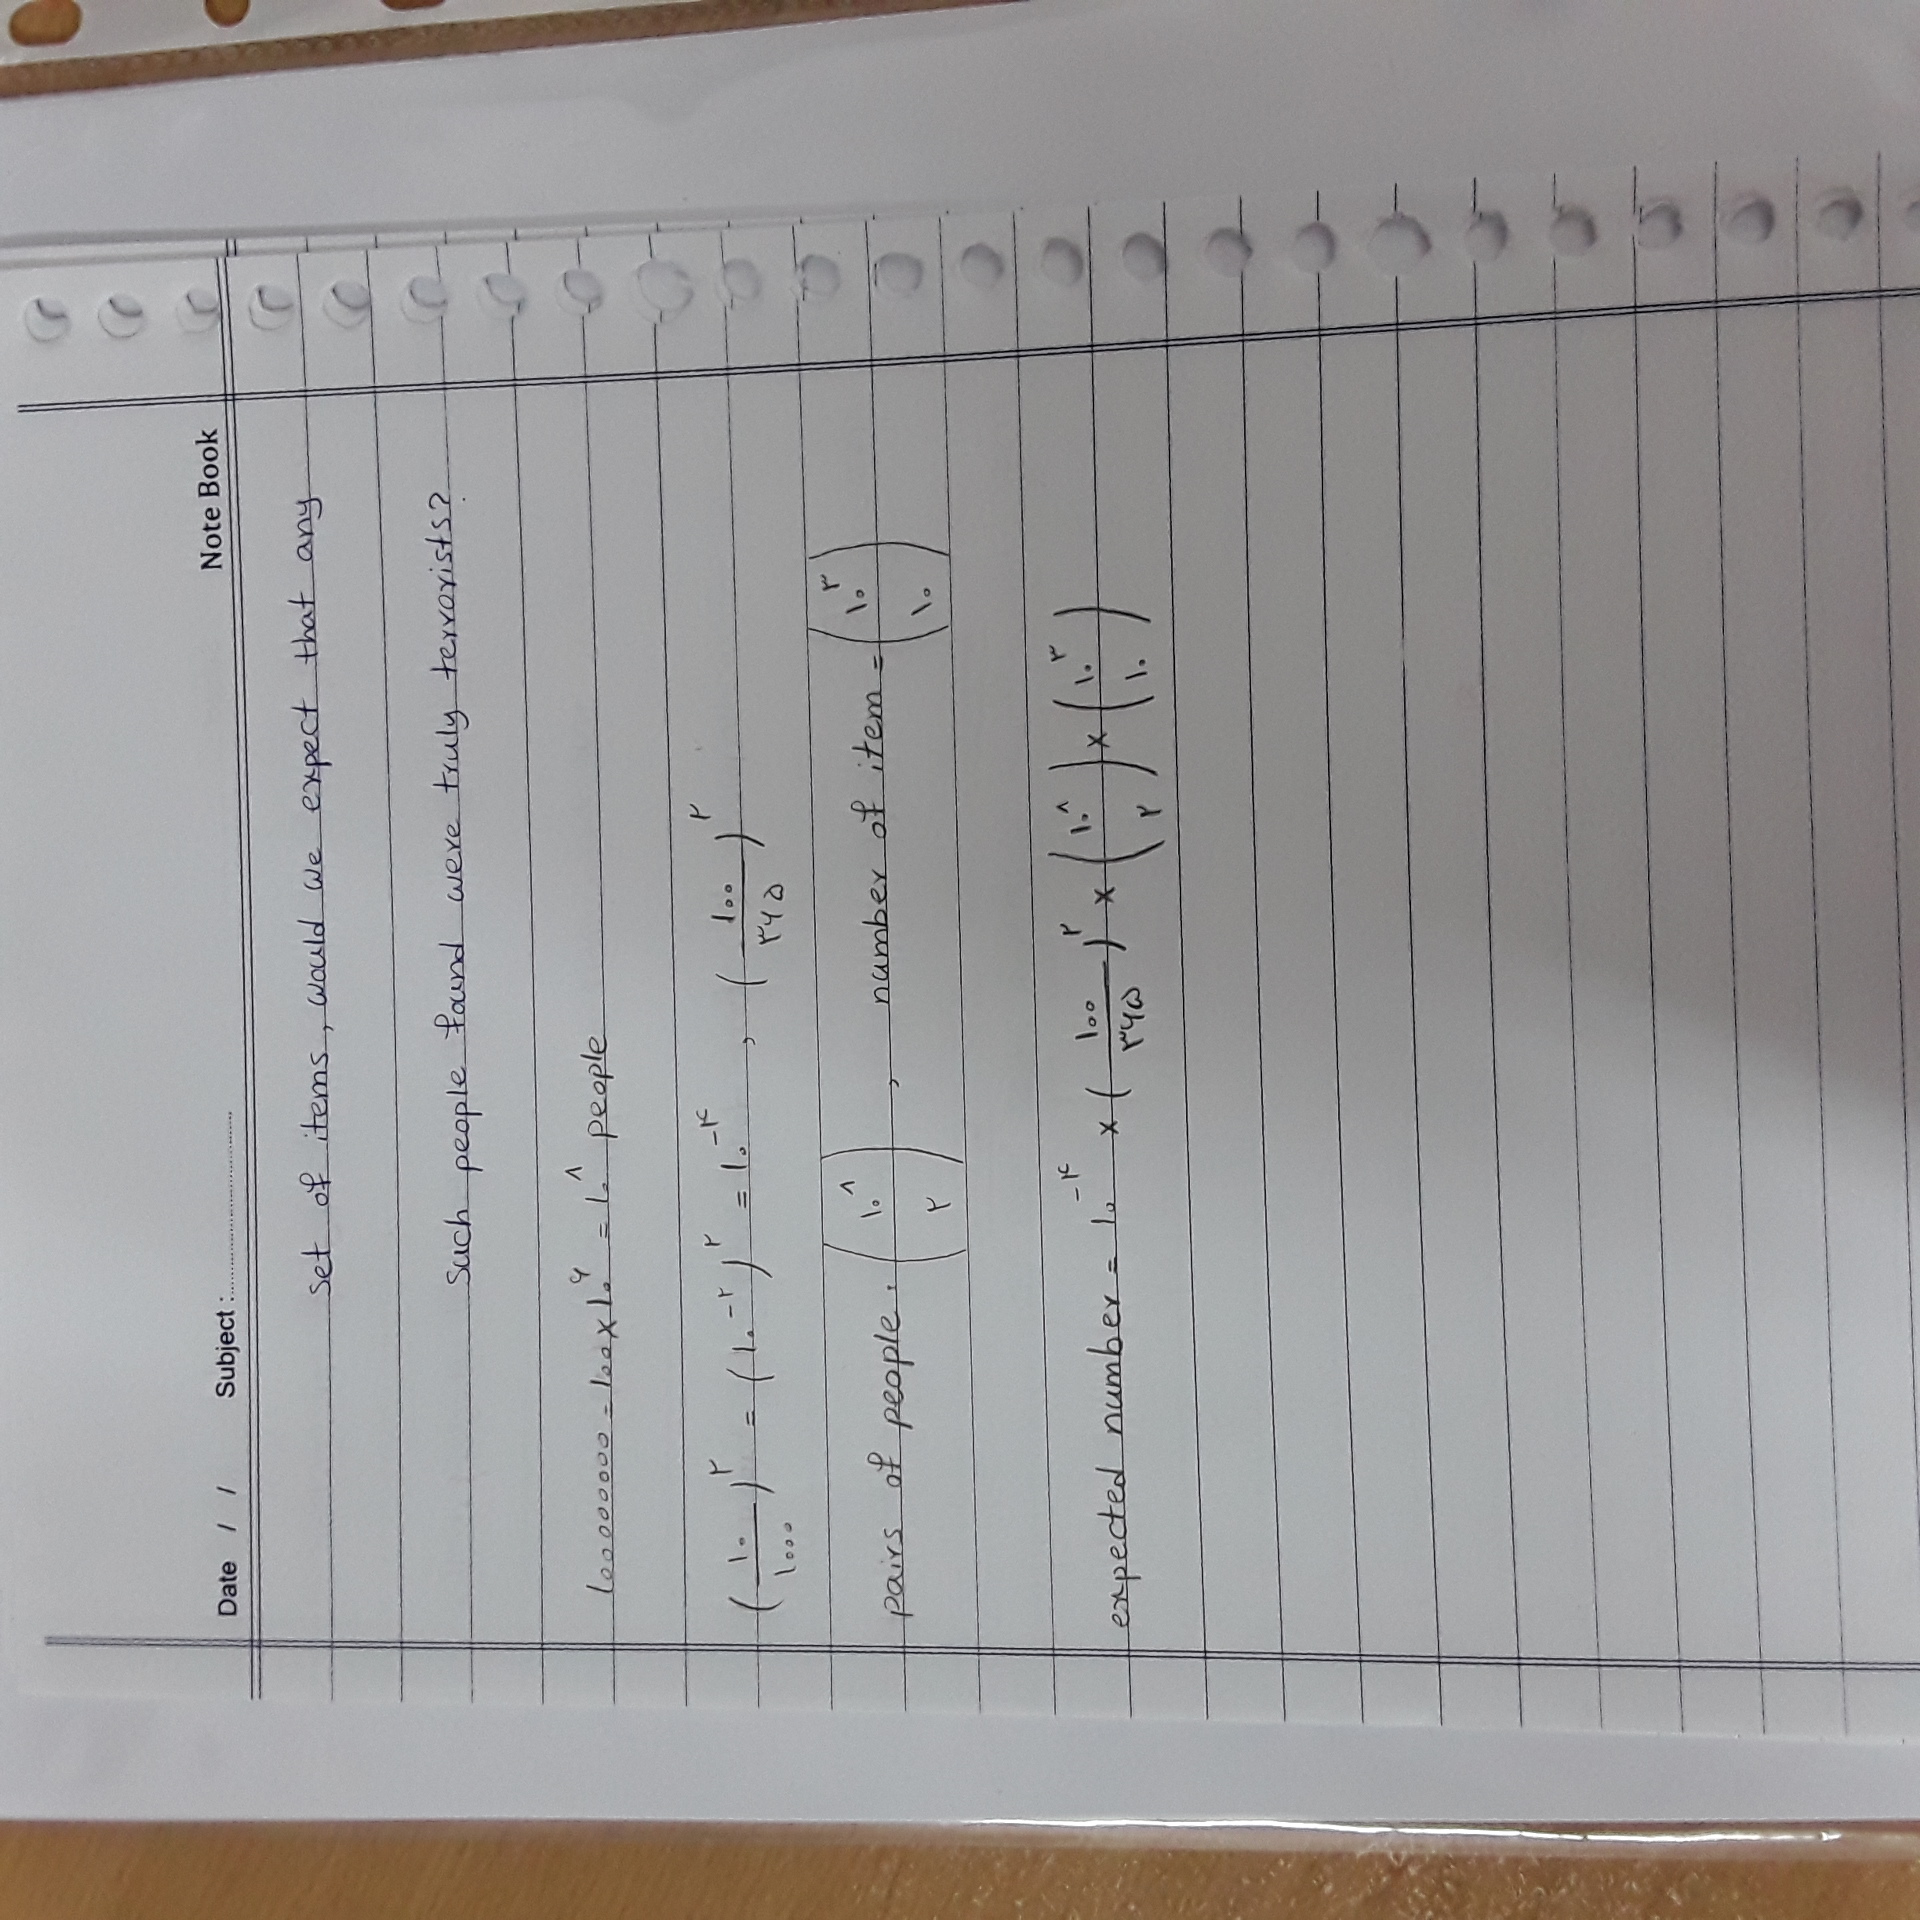 Date / / Subject :........................ Note Book
set of items, would we expect that any
such people found were truly terrorists?
۱۰۰۰۰۰۰۰۰ = ۱۰۰ × ۱۰^۶ = ۱۰^۸ people
(۱۰/۱۰۰۰)^۲ = (۱۰^-۲)^۲ = ۱۰^-۴ , (۱۰۰/۳۶۵)^۲
pairs of people = (۱۰^۸ ۲) , number of item = (۱۰^۳ ۱۰)
expected number = ۱۰^-۴ × (۱۰۰/۳۶۵)^۲ × (۱۰^۸ ۲) × (۱۰^۳ ۱۰)